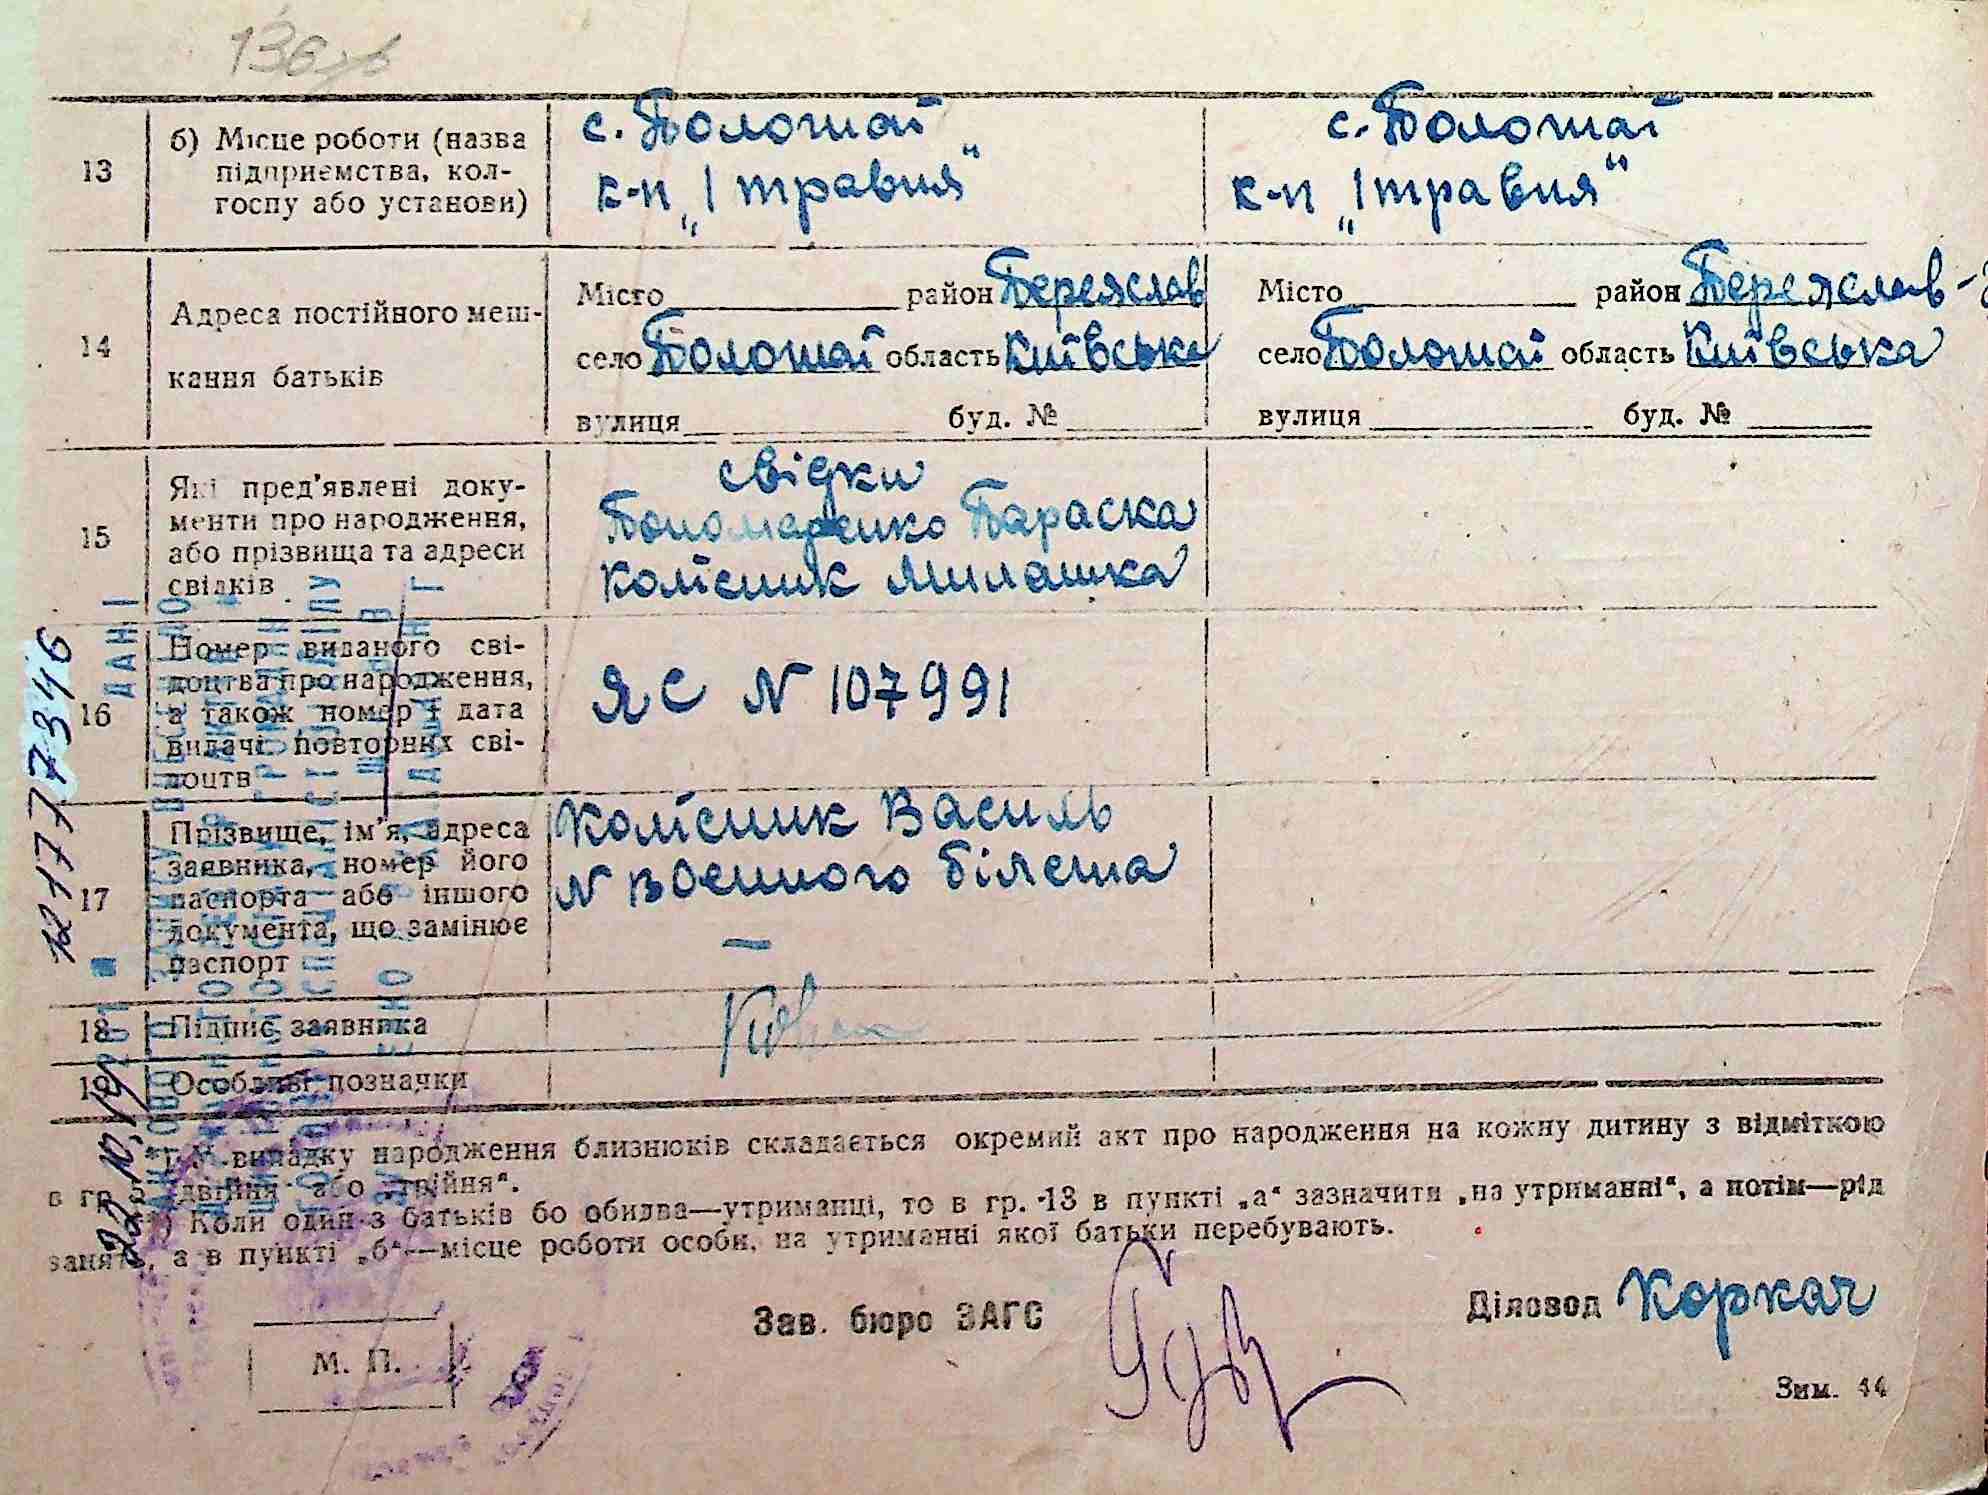 136зв
13 б) Місце роботи (назва підприємства, колгоспу або установи)
с. Пологиаї
к-п „1 травня“
с. Пологиаї
к-п „1 травня“
14 Адреса постійного мешкання батьків
Місто район Переяслав
село Пологиаї область Київська
вулиця буд. №
Місто район Переяслав-
село Пологиаї область Київська
вулиця буд. №
15 Які пред'явлені документи про народження, або прізвища та адреси свідків
свідки
Пономаренко Параска
Колісник Милашка
16 Номер виданого свідоцтва про народження, а також номер і дата видачі повторних свідоцтв
ЯС N 107991
17 Прізвище, ім'я, адреса заявника, номер його паспорта або іншого документа, що замінює паспорт
Колісник Василь
N воєнного білета
—
18 Підпис заявника
19 Особливі позначки
*) У випадку народження близнюків складається окремий акт про народження на кожну дитину з відміткою
в гр. 8 „двійня“ або „трійня“.
) Коли один з батьків бо обидва—утриманці, то в гр. -13 в пункті „а“ зазначити „на утриманні“, а потім—рід
занять, а в пункті „б“—місце роботи особи, на утриманні якої батьки перебувають.
Зав. бюро ЗАГС
Діловод Коркач
М. П.
Зим. 44
121777346
22 10, 19 201
ДАНІ